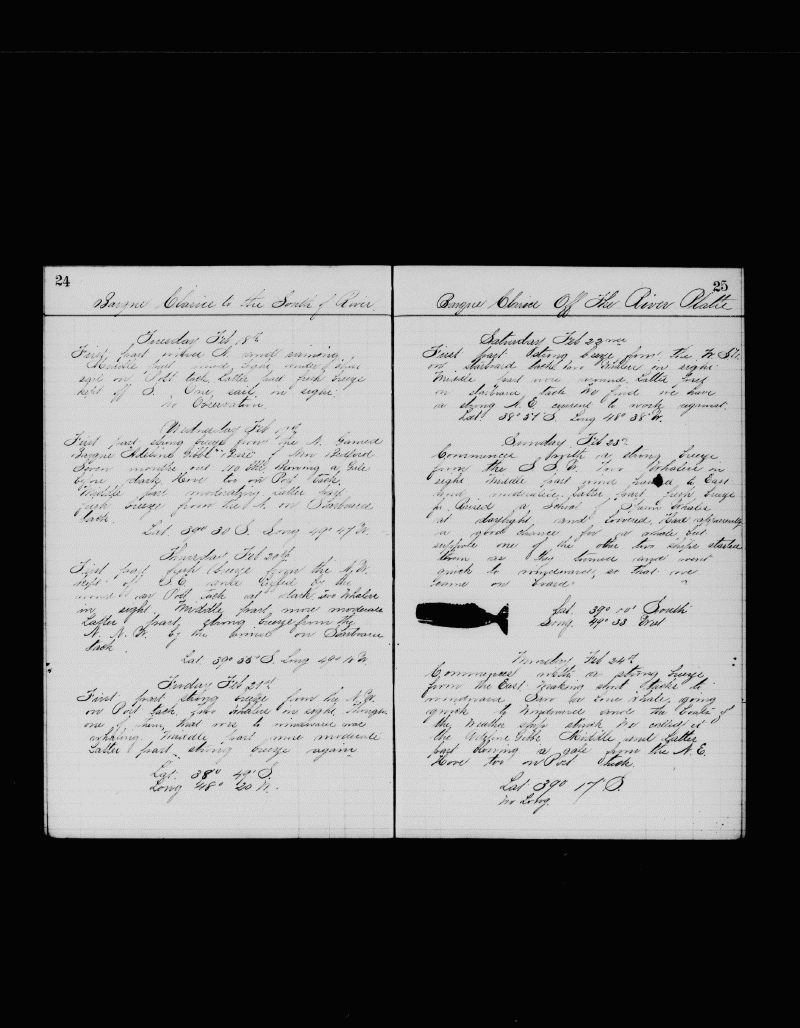 24
Barque Clarice to the South of River
Tuesday Feb 18th
First part wind N and raining
Middle part wind
on Port tack Latter part fresh breeze
off S. One sail in sight
No Observation
Wednesday Feb 19th
First part strong breeze from the N. Gamed
Barque Adeline Gibbs of New Bedford
Seven months out 110 Bbls Blowing a Gale
before dark Hove too on Port tack
Middle part moderating Latter part
fresh breeze from the N. on Starboard
tack
Lat 39° 30 S. Long 49° 47 W.
Thursday Feb 20th
First part fresh breeze from the N.W.
off S.E. by the
wind on Port tack at dark two Whalers
in sight Middle part more moderate
Latter part strong breeze from the
N.N.W. by the wind on Starboard
tack
Lat 39° 35' S. Long 49° W.
Friday Feb 21st
First part strong breeze from the N.W.
on Port tack two whalers in sight
one of them that was to windward was
whaling Middle part more moderate
Latter part strong breeze again
Lat. 38° 49' S.
Long 48° 20 W.
25
Barque Clarice Off The River Platte
Saturday Feb 22nd
First part strong breeze from the
on starboard tack two Whalers in sight
Middle part wore around Latter part
on starboard tack We find we have
a strong N.E. current to work against
Lat. 38° 57' S. Long 48° 38' W.
Sunday Feb 23rd
Commences with a strong breeze
from the S.S.W. Two Whalers in
sight Middle part wind to East
and moderate Latter part fresh breeze
Raised a School of Sperm Whales
at daylight and lowered. Had apparently
a good chance for a whale but
suppose one of the other two ships started
them as they turned and went
quick to windward, so that we
came on board
Lat. 39° 00' South
Long. 49° 33 West
Monday Feb 24th
Commences with a strong breeze
from the East. Making short tacks to
windward Saw one whale, going
quick to windward saw the boats of
the Weather ship struck We called it
the Adeline Gibbs Middle and Latter
part blowing a gale from the N.E.
Hove too on Port tack.
Lat 39° 17' S.
No Long.